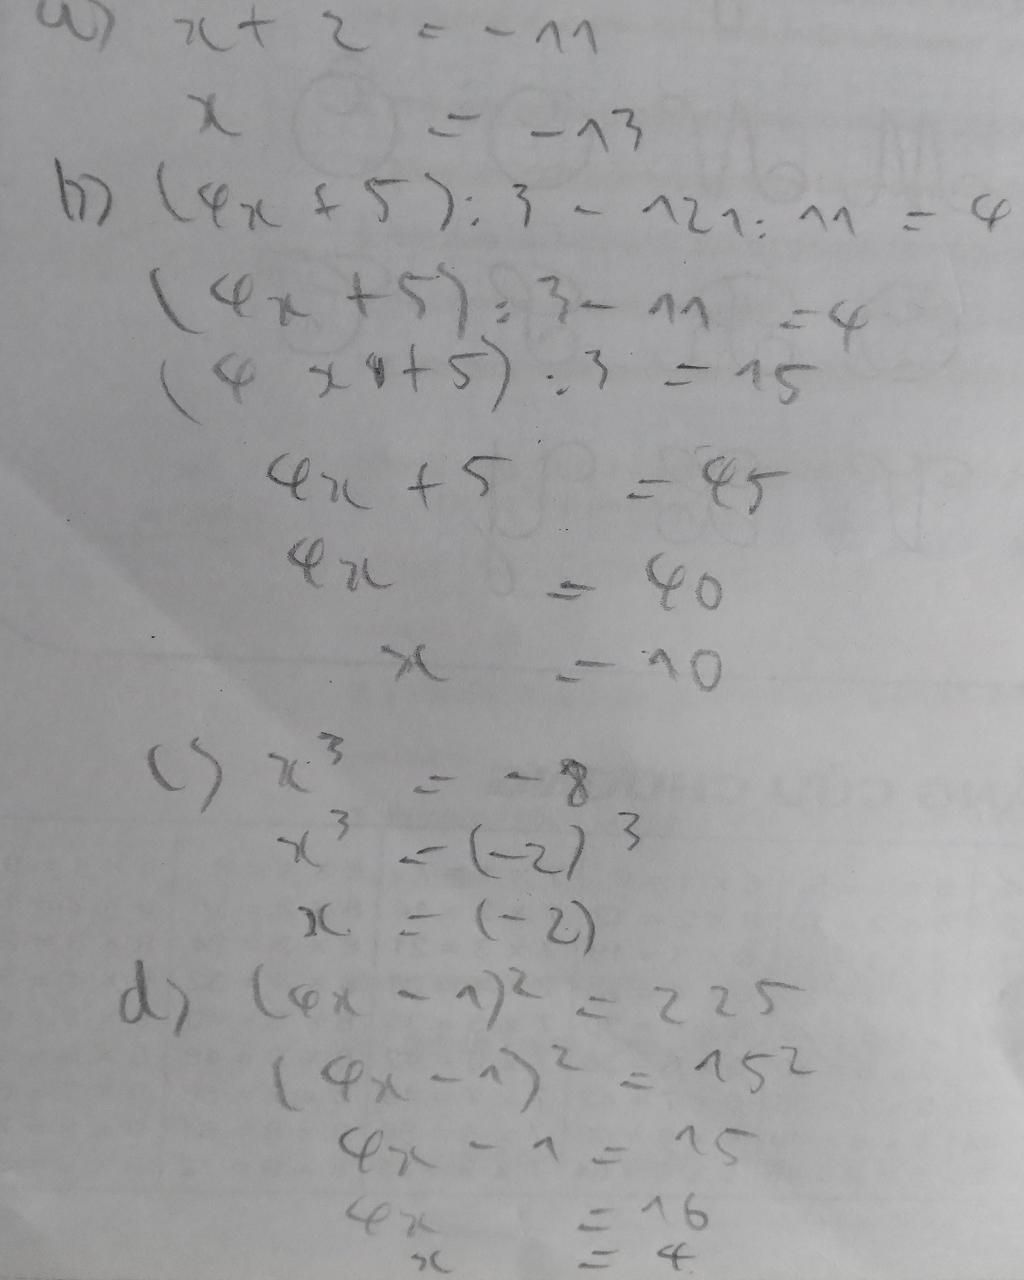 a) x + 2 = -11
x = -13
b) (4x + 5) : 3 - 121 : 11 = 4
(4x + 5) : 3 - 11 = 4
(4x + 5) : 3 = 15
4x + 5 = 45
4x = 40
x = 10
c) x³ = -8
x³ = (-2)³
x = (-2)
d) (4x - 1)² = 225
(4x - 1)² = 15²
4x - 1 = 15
4x = 16
x = 4